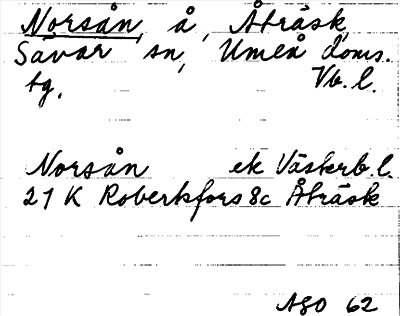 Norsån, å, Åträsk
Sävar sn, Umeå doms.
tg. Vb. l.
Norsån ek Västerb. l.
21 K Robertsfors 8c Åträsk
ASO 62